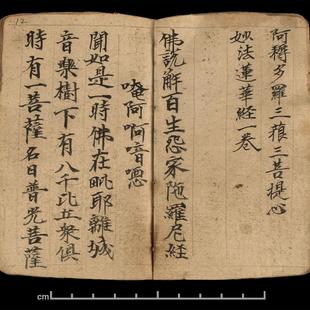 阿耨多羅三藐三菩提心
妙法蓮華經一卷
佛說解百生怨家陁羅尼經
唵阿啊暗噁
聞如是一時佛在毗耶離城
音樂樹下有八千比丘衆俱
時有一菩薩名曰普光菩薩
12
cm